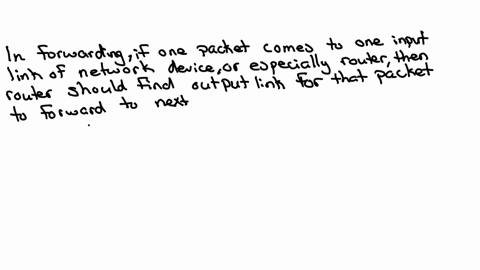 In forwarding, if one packet comes to one input
link of network device, or especially router, then
router should find output link for that packet
to forward to next